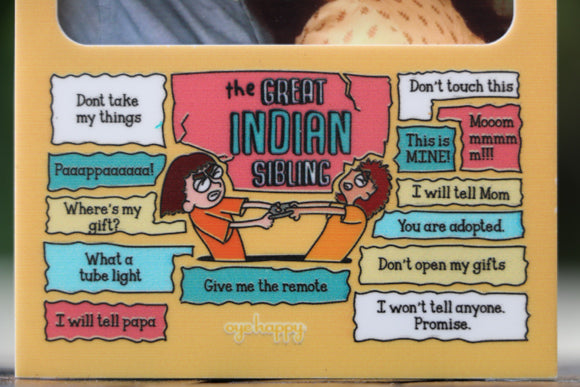 the GREAT
INDIAN
SIBLING
Dont take
my things
Paaappaaaaaa!
Where's my
gift?
What a
tube light
I will tell papa
Give me the remote
Don't touch this
This is
MINE!
Mooom
mmmm
m!!!
I will tell Mom
You are adopted.
Don't open my gifts
I won't tell anyone.
Promise.
oyehappy